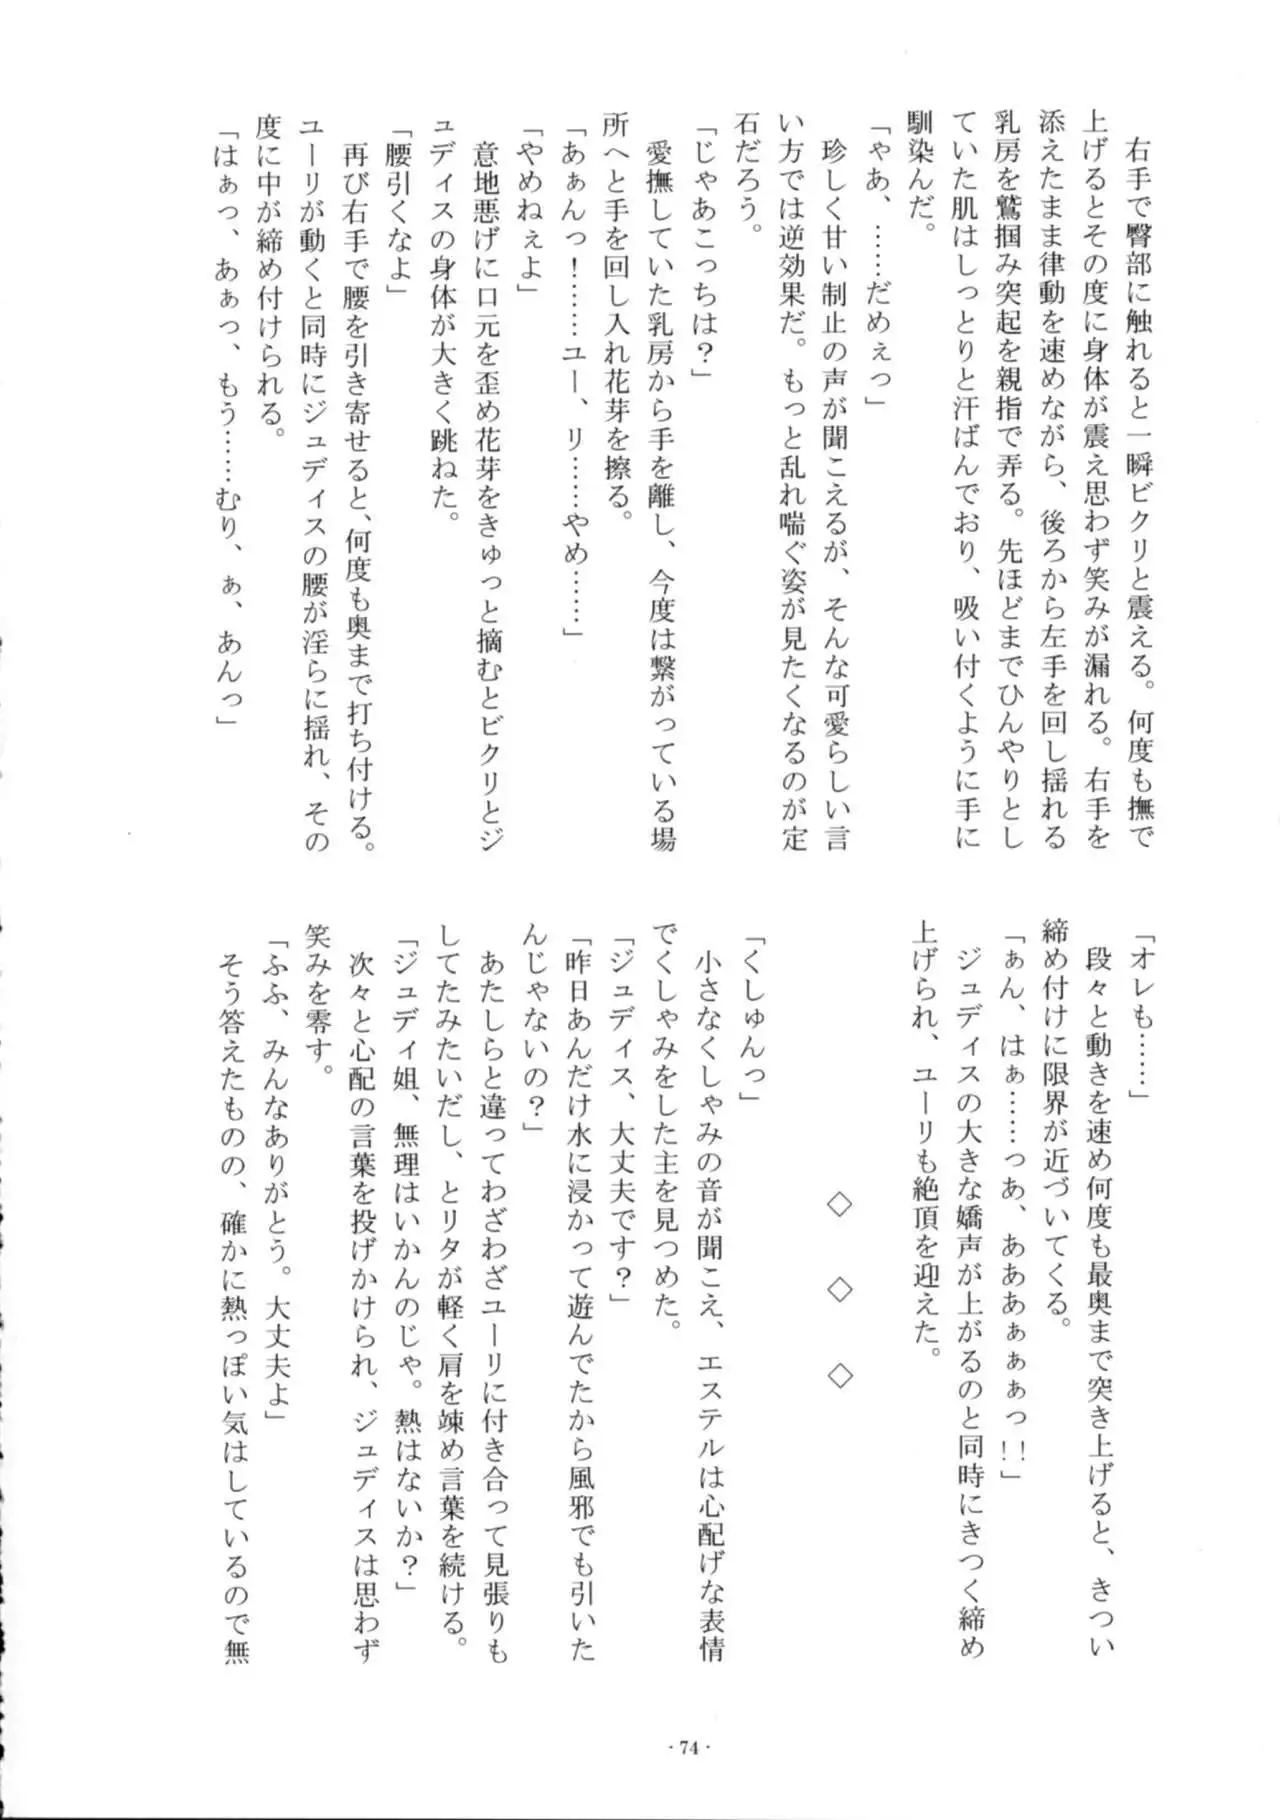 右手で臀部に触れると一瞬ビクリと震える。何度も撫で
上げるとその度に身体が震え思わず笑みが漏れる。右手を
添えたまま律動を速めながら、後ろから左手を回し揺れる
乳房を鷲掴み突起を親指で弄る。先ほどまでひんやりとし
ていた肌はしっとりと汗ばんでおり、吸い付くように手に
馴染んだ。
「ゃあ、……だめぇっ」
　珍しく甘い制止の声が聞こえるが、そんな可愛らしい言
い方では逆効果だ。もっと乱れ喘ぐ姿が見たくなるのが定
石だろう。
「じゃあこっちは？」
　愛撫していた乳房から手を離し、今度は繋がっている場
所へと手を回し入れ花芽を擦る。
「あぁんっ！……ユー、リ……やめ……」
「やめねぇよ」
　意地悪げに口元を歪め花芽をきゅっと摘むとビクリとジ
ュディスの身体が大きく跳ねた。
「腰引くなよ」
　再び右手で腰を引き寄せると、何度も奥まで打ち付ける。
ユーリが動くと同時にジュディスの腰が淫らに揺れ、その
度に中が締め付けられる。
「はぁっ、あぁっ、もう……むり、ぁ、あんっ」
「オレも……」
　段々と動きを速め何度も最奥まで突き上げると、きつい
締め付けに限界が近づいてくる。
「ぁん、はぁ……っあ、あああぁぁぁっ!!」
　ジュディスの大きな嬌声が上がるのと同時にきつく締め
上げられ、ユーリも絶頂を迎えた。
◇　◇　◇
「くしゅんっ」
　小さなくしゃみの音が聞こえ、エステルは心配げな表情
でくしゃみをした主を見つめた。
「ジュディス、大丈夫です？」
「昨日あんだけ水に浸かって遊んでたから風邪でも引いた
んじゃないの？」
　あたしらと違ってわざわざユーリに付き合って見張りも
してたみたいだし、とリタが軽く肩を竦め言葉を続ける。
「ジュディ姐、無理はいかんのじゃ。熱はないか？」
　次々と心配の言葉を投げかけられ、ジュディスは思わず
笑みを零す。
「ふふ、みんなありがとう。大丈夫よ」
　そう答えたものの、確かに熱っぽい気はしているので無
- 74 -